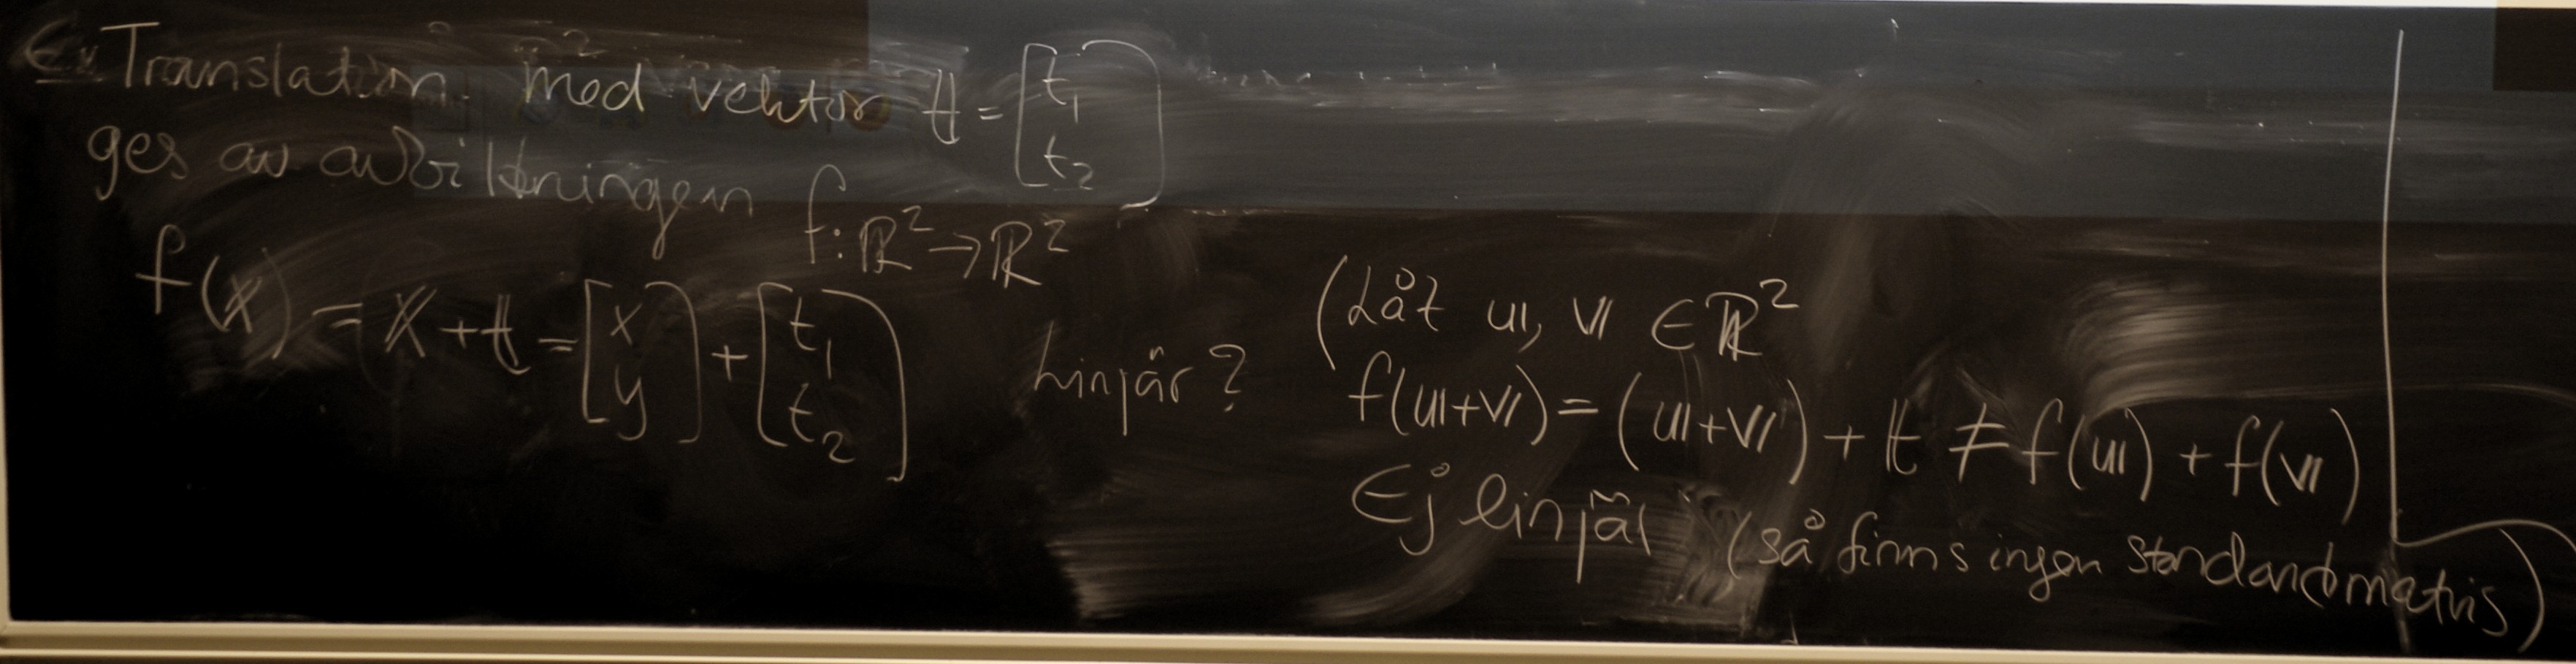 Ex Translation med vektor t = [t₁ t₂]
ges av avbildningen f: ℝ² → ℝ²
f(x) = x + t = [x y] + [t₁ t₂]
Linjär?
(Låt u, v ∈ ℝ²
f(u+v) = (u+v) + t ≠ f(u) + f(v)
Ej linjär (så finns ingen standardmatris)